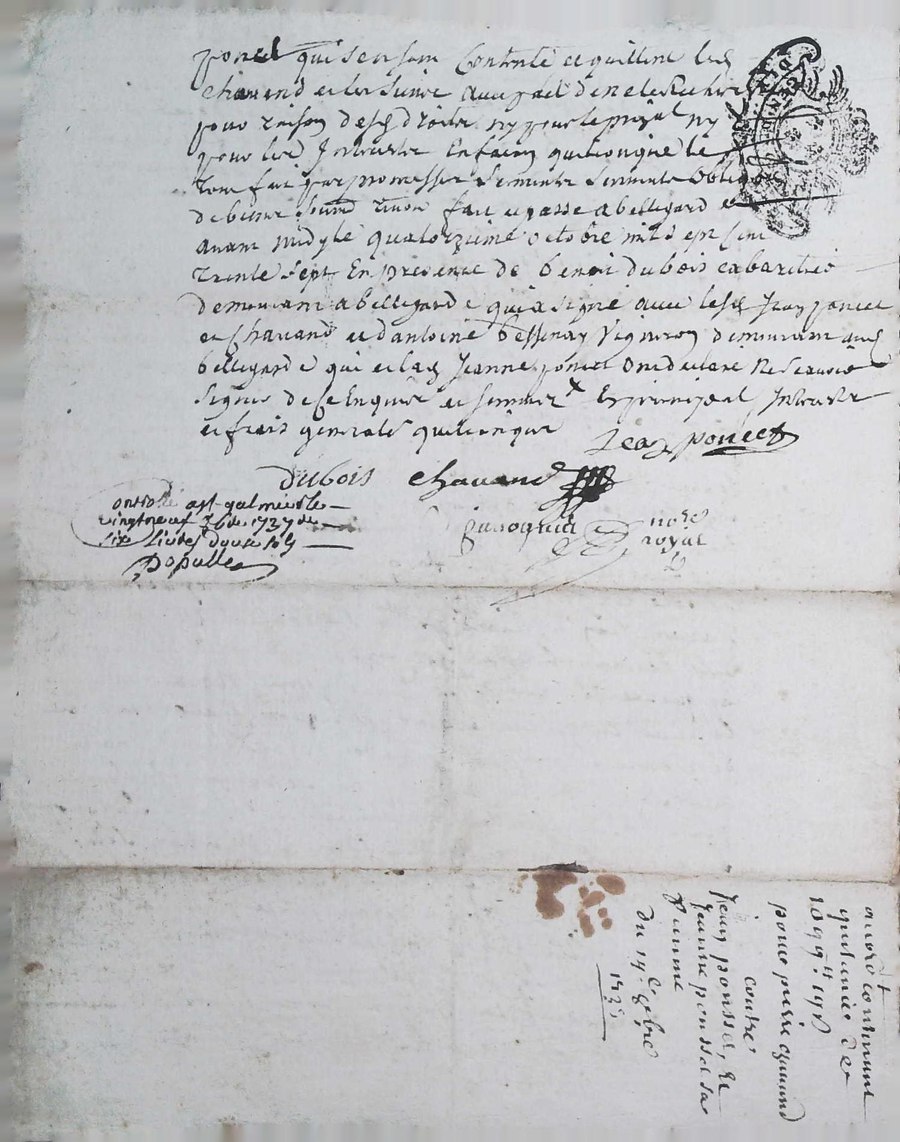 poncet qui sen son Contenté et quittent led
chavand et les siens avec pact de ne les Rechercher
pour raison desd droits ny pour le prinpal ny
pour les Interestz Enfacon quelconque le
tout fait par promesses serments
de biens renon fait et passe a bellegard
avant midy le quatorzieme octobre mil sept cent
trente sept En presence de benoit dubois cabaretier
demeurant a bellegarde qui a signé avec lesd Jean poncet
et chavand et dantoine bessenay vigneron demeurant aud
bellegarde qui et lad Jeanne poncet ont declaré ne scavoir
signer de ce Enquis et sommez En principal Interestz
et frais generalt quelconque
Jean poncet
dubois chavand
nore
royal
ontrolé a st galmier le
vingtneuf 8bre 1737 de
six livres douze sols
Dopulle
accord contenant
quittance de
1099lt 19s
pour pierre chavand
contre
Jean ponsset, et
Jeanne ponsset sa
femme
du 14e 8bre
1737